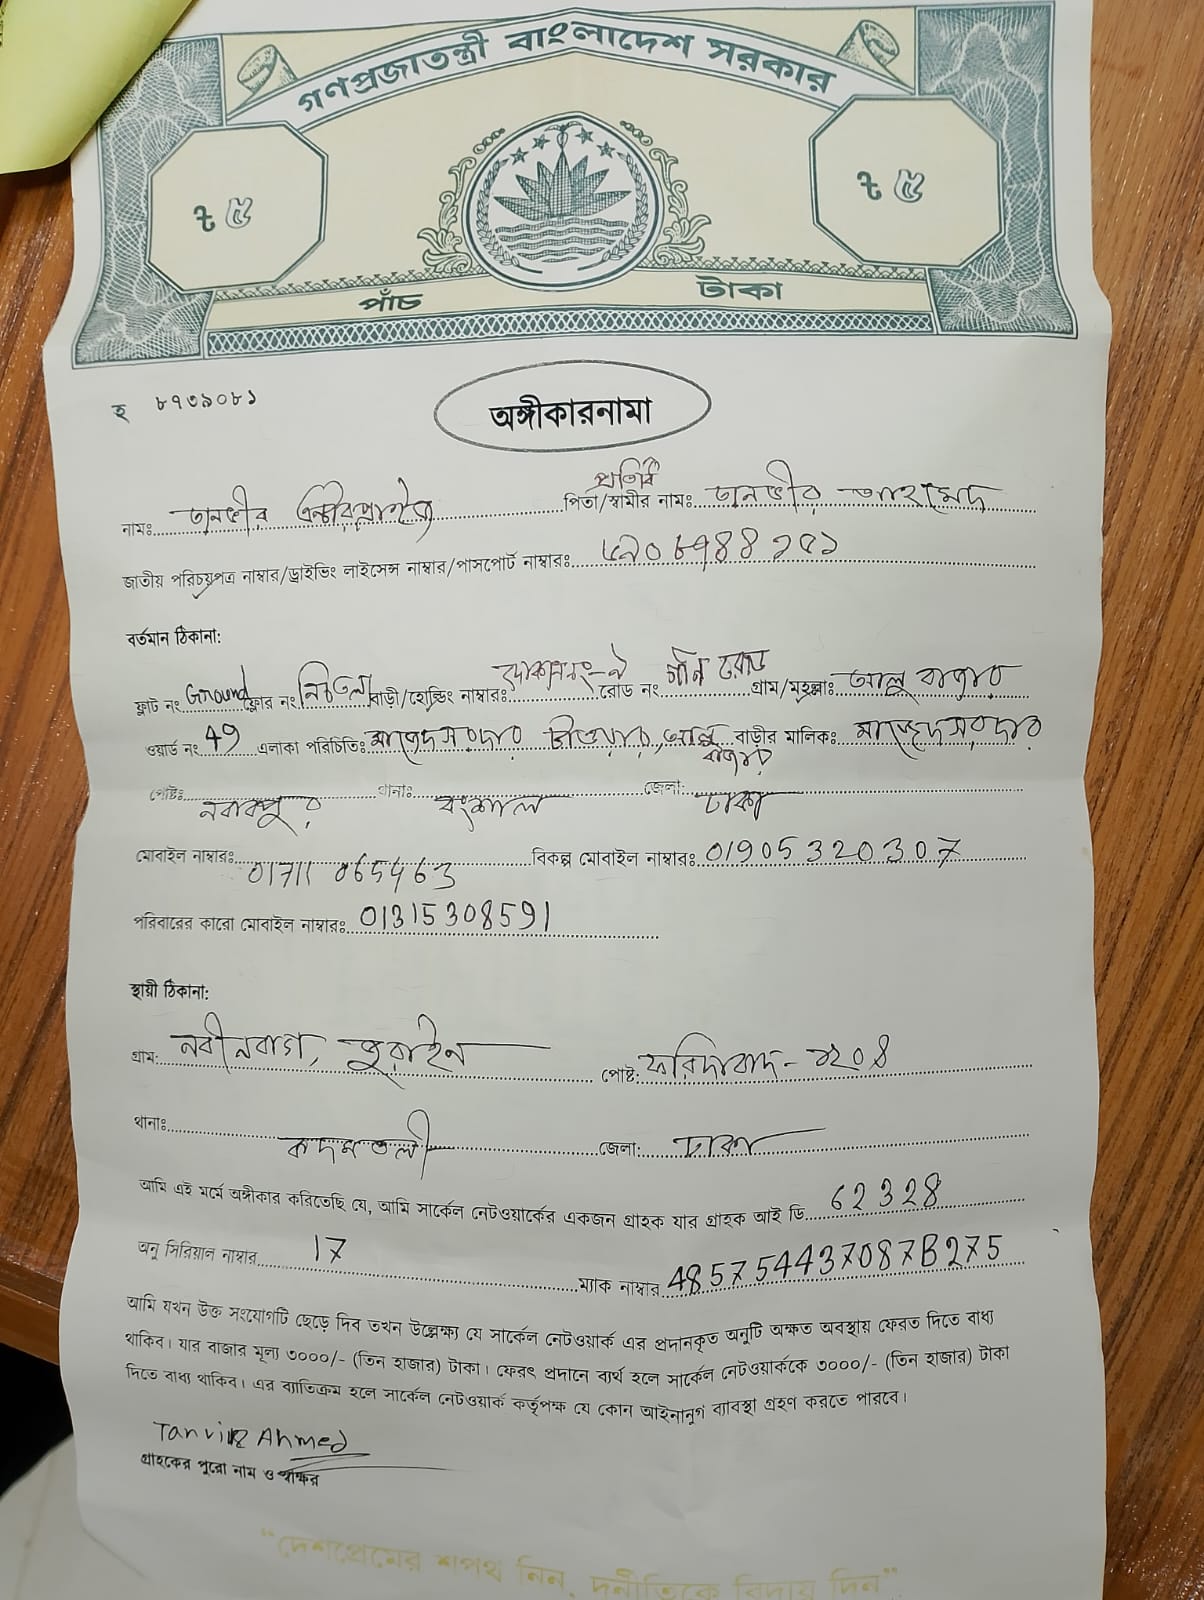 গণপ্রজাতন্ত্রী বাংলাদেশ সরকার
৳ ৫ ৳ ৫
পাঁচ টাকা
হ ৮৭৩৯০৮১
অঙ্গীকারনামা
নামঃ তানভীর এন্টারপ্রাইজ পিতা/স্বামীর নামঃ তানভীর আহমেদ
জাতীয় পরিচয়পত্র নাম্বার/ড্রাইভিং লাইসেন্স নাম্বার/পাসপোর্ট নাম্বারঃ
বর্তমান ঠিকানা:
ফ্লাট নং Ground ফ্লোর নং নিচতলা বাড়ী/হোল্ডিং নাম্বারঃ দোকান নং-৯ রোড নং লেন রোড গ্রাম/মহল্লাঃ আলু বাজার
ওয়ার্ড নং 49 এলাকা পরিচিতিঃ মাজেদ সরদার , আলু বাজার বাড়ীর মালিকঃ মাজেদ সরদার
পোষ্টঃ নবাবপুর থানাঃ বংশাল জেলা: ঢাকা
মোবাইল নাম্বারঃ 01711 065463 বিকল্প মোবাইল নাম্বারঃ 01905320307
পরিবারের কারো মোবাইল নাম্বারঃ 01315308591
স্থায়ী ঠিকানা:
গ্রাম: নবীনবাগ, জুরাইন পোষ্ট: ফরিদাবাদ - ১২০৪
থানাঃ কদমতলী জেলা: ঢাকা
আমি এই মর্মে অঙ্গীকার করিতেছি যে, আমি সার্কেল নেটওয়ার্কের একজন গ্রাহক যার গ্রাহক আই ডি 62328
অনু সিরিয়াল নাম্বার 17 ম্যাক নাম্বার 485754437087B275
আমি যখন উক্ত সংযোগটি ছেড়ে দিব তখন উল্লেক্ষ্য যে সার্কেল নেটওয়ার্ক এর প্রদানকৃত অনুটি অক্ষত অবস্থায় ফেরত দিতে বাধ্য
থাকিব। যার বাজার মূল্য ৩০০০/- (তিন হাজার) টাকা। ফেরৎ প্রদানে ব্যর্থ হলে সার্কেল নেটওয়ার্ককে ৩০০০/- (তিন হাজার) টাকা
দিতে বাধ্য থাকিব। এর ব্যাতিক্রম হলে সার্কেল নেটওয়ার্ক কর্তৃপক্ষ যে কোন আইনানুগ ব্যাবস্থা গ্রহণ করতে পারবে।
Tanvir Ahmed
গ্রাহকের পুরো নাম ও স্বাক্ষর
“দেশপ্রেমের শপথ নিন, দুর্নীতিকে বিদায় দিন”